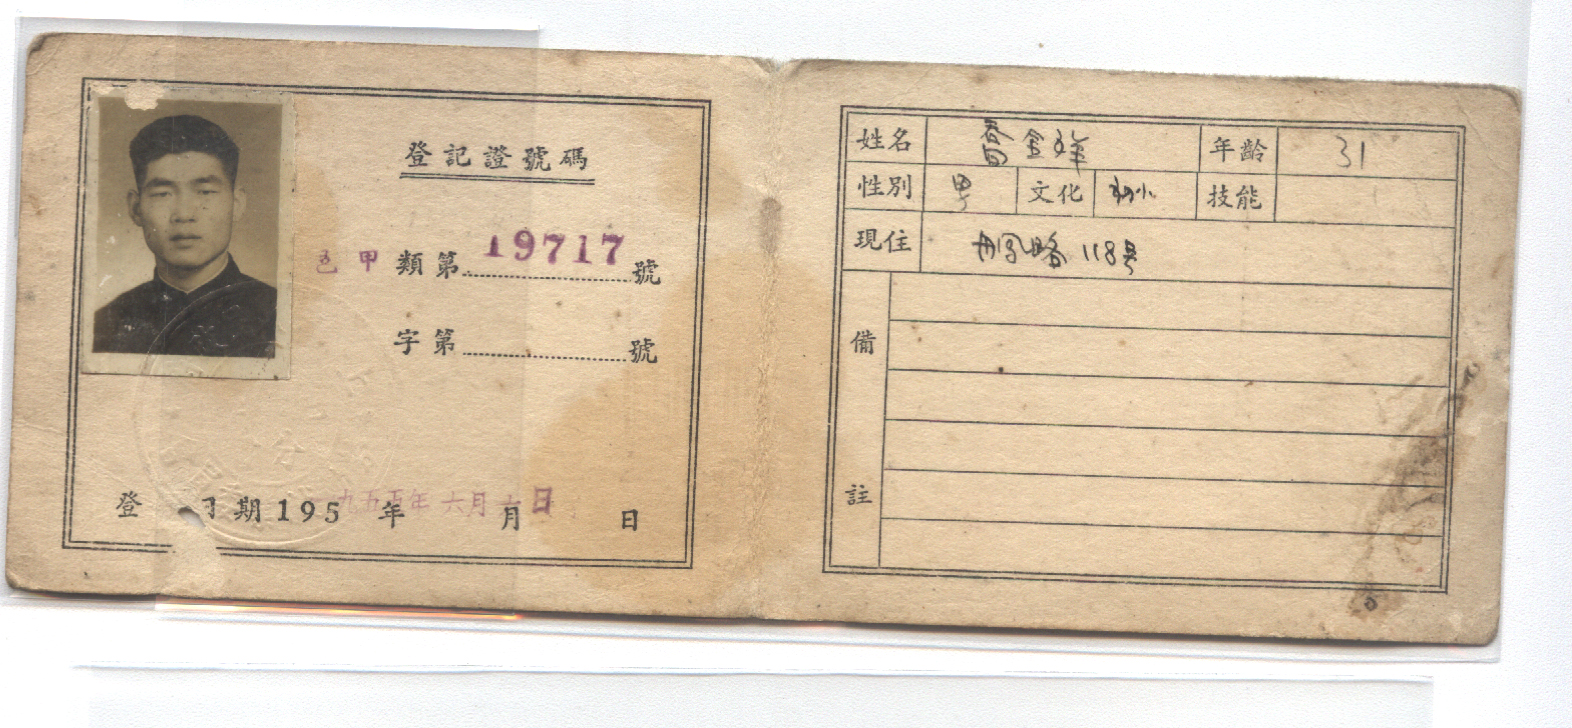 登記證號碼
甲 類第 19717 號
字第 號
登 期195 年 月 日
一九五五年六月 日
姓名 金祥 年齡 31
性別 男 文化 初小 技能
現住 路118号
備
註